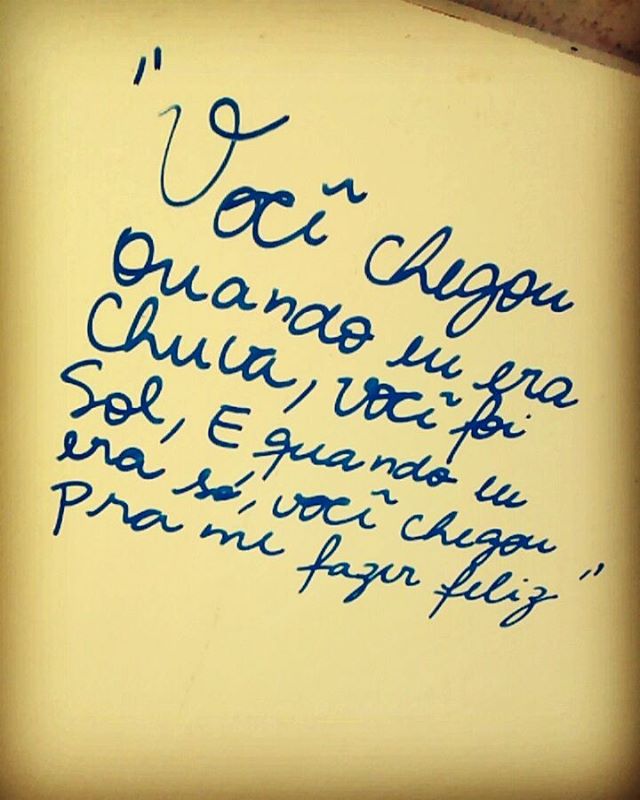 "Você chegou
Quando eu era
Chuva, você foi
Sol, E quando eu
era só, você chegou
Pra me fazer feliz"